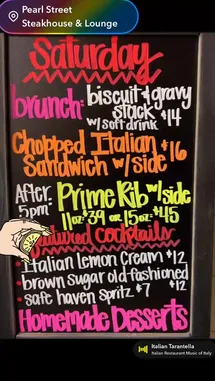 Pearl Street
Steakhouse & Lounge
Saturday
brunch: biscuit & gravy
stack
w/ soft drink $14
Chopped Italian
Sandwich w/ side $16
After
5pm: Prime Rib w/ side
11oz $39 or 15oz $45
featured cocktails
• Italian Lemon Cream $12
• brown sugar old-fashioned $12
• safe haven spritz $7
Homemade Desserts
Italian Tarantella
Italian Restaurant Music of Italy